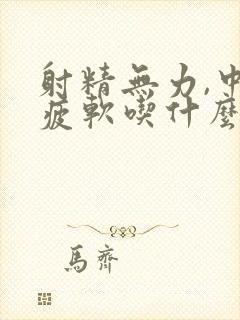 射精無力,中
疲軟喫什麼
馬齋